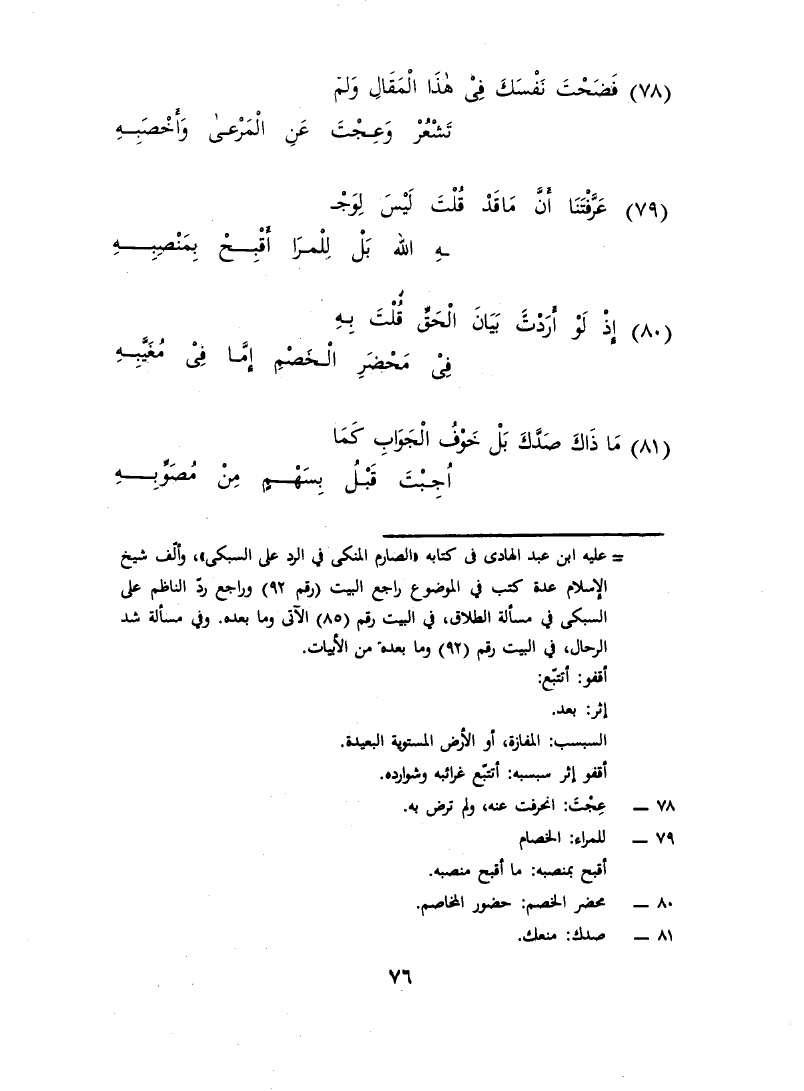 (٧٨) فَضَحْتَ نَفْسَكَ فِيْ هٰذَا الْمَقَالِ وَلَمْ
تَشْعُرْ وَعِـجْتَ عَنِ الْمَرْعىٰ وَأَخْصَبِـهِ
(٧٩) عَرَّفْتَنَا أَنَّ مَاقَدْ قُلْتَ لَيْسَ لِوَجْـ
ـهِ الله بَلْ لِلْمـرَا أَقْبِـحْ بِمَنْصِبِـهِ
(٨٠) إِذْ لَوْ أَرَدْتَّ بَيَانَ الْحَقِّ قُلْتَ بِهِ
فِيْ مَحْضَرِ الْـخَصْمِ إِمَّـا فِيْ مُغَيَّبِـهِ
(٨١) مَا ذَاكَ صَدَّكَ بَلْ خَوْفُ الْجَوَابِ كَمَا
أُجِبْتَ قَبْـلُ بِسَهْـمٍ مِنْ مُصَوِّبِـهِ
= عليه ابن عبد الهادى فى كتابه «الصارم المنكى في الرد على السبكى»، وألّف شيخ
الإسلام عدة كتب في الموضوع راجع البيت (رقم ٩٢) وراجع ردّ الناظم على
السبكى في مسألة الطلاق، في البيت رقم (٨٥) الآتى وما بعده. وفي مسألة شد
الرحال، في البيت رقم (٩٢) وما بعده من الأبيات.
أقفو: أتتبّع:
إثر: بعد.
السبسب: المفازة، أو الأرض المستوية البعيدة.
أقفو إثر سبسبه: أتتبّع غرائبه وشوارده.
٧٨ — عِجْتَ: انحرفت عنه، ولم ترض به.
٧٩ — للمراء: الخصام
أقبح بمنصبه: ما أقبح منصبه.
٨٠ — محضر الخصم: حضور المخاصم.
٨١ — صدك: منعك.
٧٦